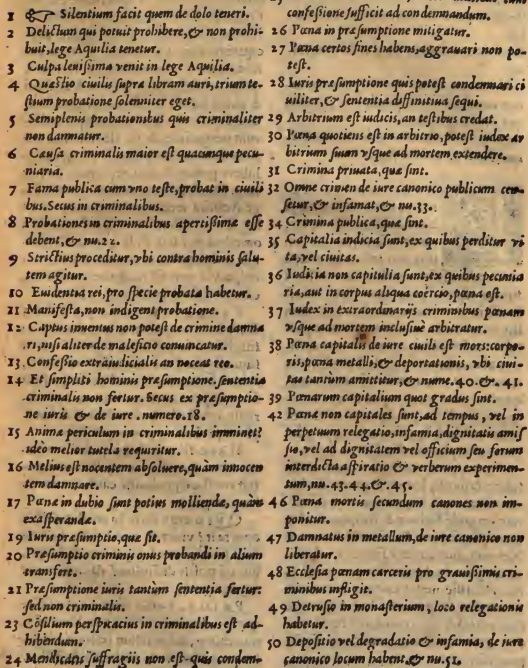 1 ☞ Silentium facit quem de dolo teneri.
2 Delictum qui potuit prohibere, & non prohi-
buit, lege Aquilia tenetur.
3 Culpa leuißima venit in lege Aquilia.
4 Quæstio ciuilis supra libram auri, trium te-
stium probatione solemniter eget.
5 Semiplenis probationibus quis criminaliter
non damnatur.
6 Causa criminalis maior est quacunque pecu-
niaria.
7 Fama publica cum vno teste, probat in ciuili
bus. Secus in criminalibus.
8 Probationes in criminalibus apertißimæ esse
debent, & nu. 22.
9 Strictius proceditur, vbi contra hominis salu-
tem agitur.
10 Euidentia rei, pro specie probata habetur.
11 Manifesta, non indigent probatione.
12 Captus inuentus non potest de crimine damna
ri, nisi aliter de maleficio conuincatur.
13 Confeßio extraiudicialis an noceat reo.
14 Et simpliti hominis præsumptione, sententia
criminalis non fertur. Secus ex præsumptio-
ne iuris & de iure. numero. 18.
15 Animæ periculum in criminalibus imminet?
ideo melior tutela requiritur.
16 Melius est nocentem absoluere, quàm innocen
tem damnare.
17 Pœnæ in dubio sunt potius molliendæ, quàm
exasperandæ.
19 Iuris præsumptio, quæ sit.
20 Præsumptio criminis onus probandi in alium
transfert.
21 Præsumptione iuris tantum sententia fertur:
sed non criminalis.
23 Cōsilium perspicacius in criminalibus est ad-
hibendum.
24 Mendicatis suffragiis non est quis condem-
confeßione sufficit ad condemnandum.
26 Pœna in præsumptione mitigatur.
27 Pœna certos fines habens, aggrauari non po-
test.
28 Iuris præsumptione quis potest condemnari ci
uiliter, & sententia diffinitiua sequi.
29 Arbitrium est iudicis, an testibus credat.
30 Pœna quotiens est in arbitrio, potest iudex ar
bitrium suum vsque ad mortem extendere.
31 Crimina priuata, quæ sint.
32 Omne crimen de iure canonico publicum cen-
setur, & infamat, & nu. 33.
34 Crimina publica, quæ sint.
35 Capitalia iudicia sunt, ex quibus perditur vi
ta, vel ciuitas.
36 Iudicia non capitalia sunt, ex quibus pecunia
ria, aut in corpus aliqua coërcio, pœna est.
37 Iudex in extraordinarijs criminibus pœnam
vsque ad mortem inclusiuè arbitratur.
38 Pœna capitalis de iure ciuili est mors: corpo-
ris, pœna metalli, & deportationis, vbi ciui-
tas tantum amittitur, & nume. 40. &. 41.
39 Pœnarum capitalium quot gradus sint.
42 Pœnæ non capitales sunt, ad tempus, vel in
perpetuum relegatio, infamia, dignitatis amis
sio, vel ad dignitatem vel officium seu forum
interdicta aspiratio & verberum experimen-
tum, nu. 43. 44. &. 45.
46 Pœna mortis secundum canones non im-
ponitur.
47 Damnatus in metallum, de iure canonico non
liberatur.
48 Ecclesia pœnam carceris pro grauißimis cri-
minibus infligit.
49 Detrusio in monasterium, loco relegationis
habetur.
50 Depositio vel degradatio & infamia, de iure
canonico locum habent, & nu. 51.